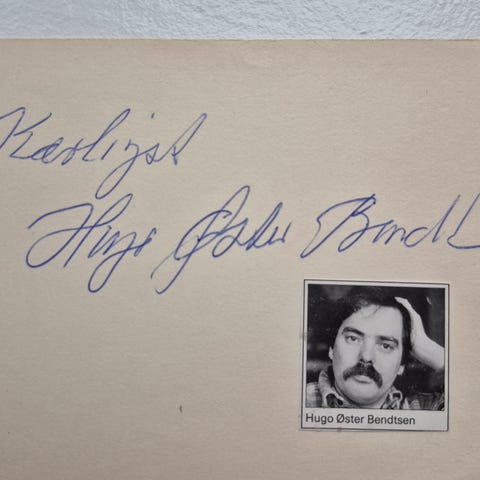 Kærligst
Hugo Øster Bendt
Hugo Øster Bendtsen